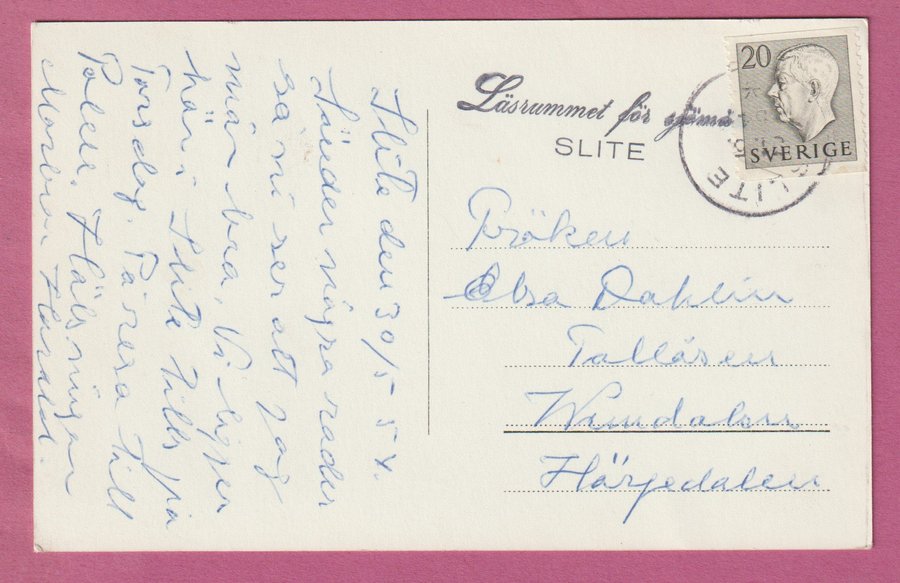 Slite den 30/5 54.
Sänder några rader
så ni ser att jag
mår bra. Vi ligger
här i Slite tills på
Torsdag. Få resa till
Polen. Hälsningar
Morbror Harald.
Läsrummet för sjömän
SLITE
20
SVERIGE
SLITE
Fröken
Elsa Dahlin
Tallåsen
Vemdalen
Härjedalen